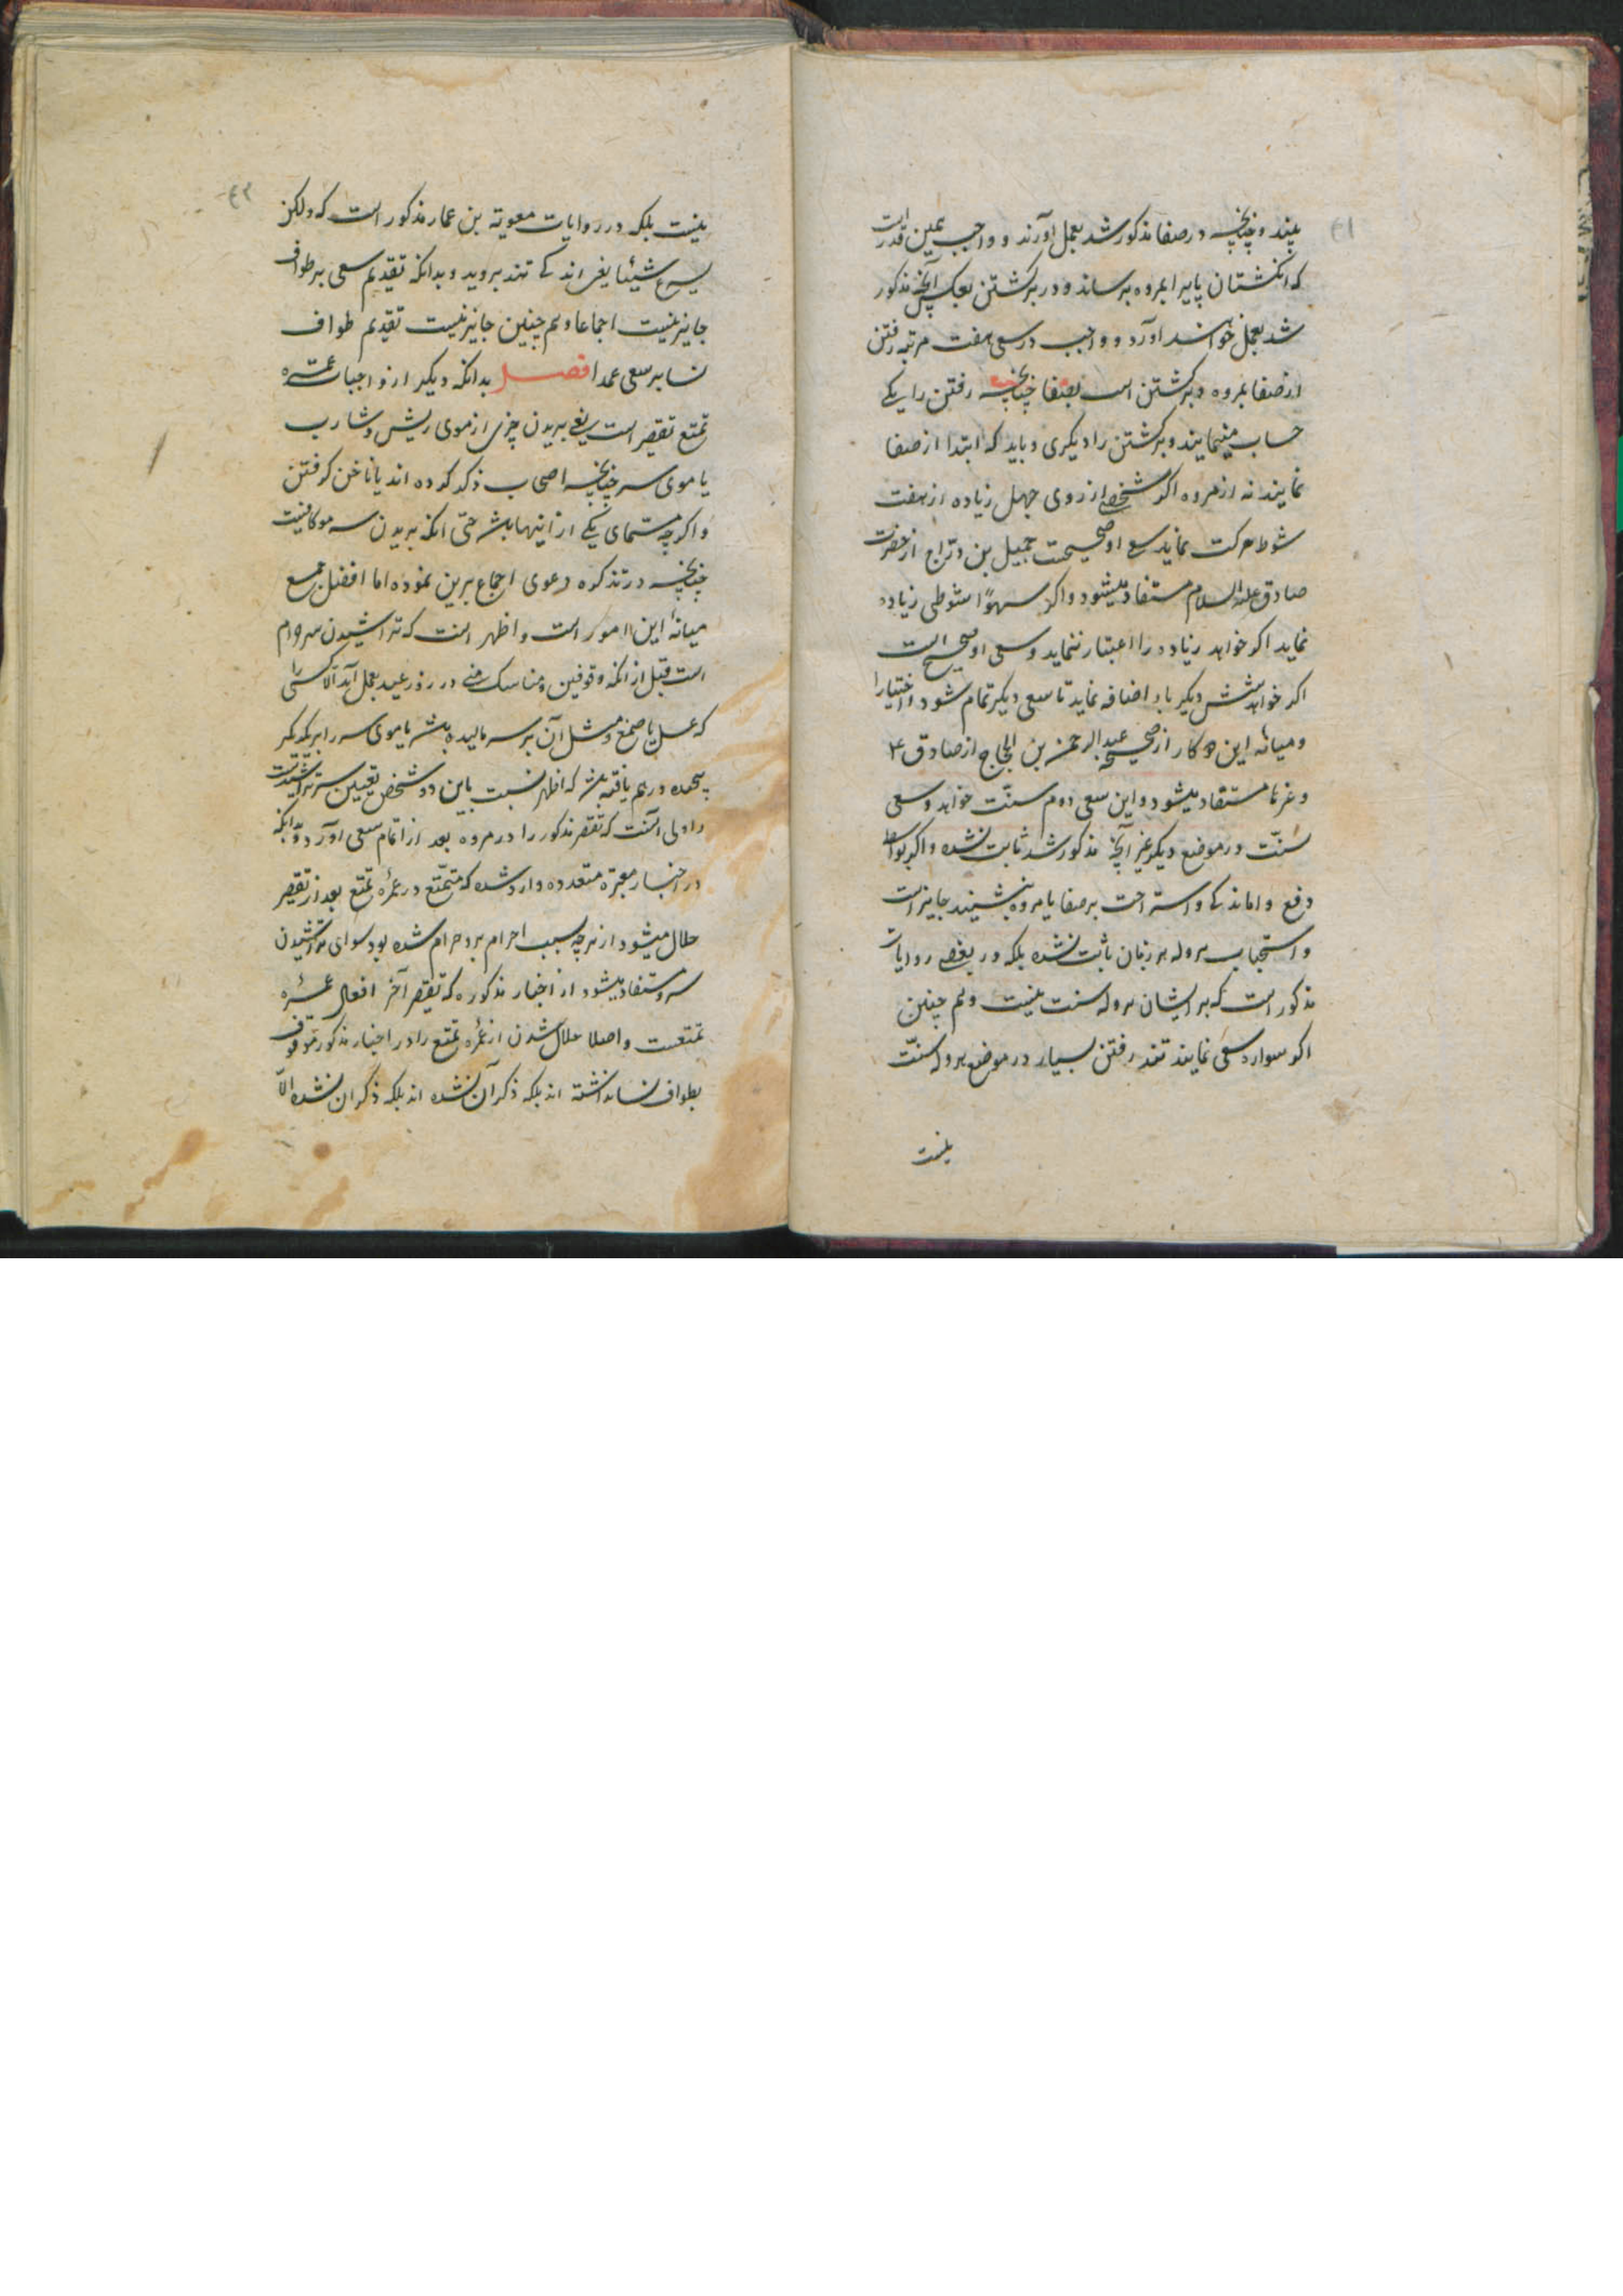 بیند و چنانچه در صفا مذکور شد بعمل آورند و واجب همین قدر است
که انگشتان پایرا بمروه برساند و در برگشتن بعکس آنچه مذکور
شد بعمل خواهند آورد و واجب در سعی هفت مرتبه رفتن
از صفا بمروه و برگشتن است بصفا چنانچه رفتن را یکی
حساب مینمایند و برگشتن را دیگری و باید که ابتدا از صفا
نمایند نه از مروه اگر شخصی از روی جهل زیاده از هفت
شوط حرکت نماید سعی او صحیحست جمیل بن دراج از حضرت
صادق علیه السلام مستفاد میشود و اگر سهواً شوطی زیاده
نماید اگر خواهد زیاده را اعتبار ننماید و سعی او صحیح است
اگر خواهد شش دیگر باو اضافه نماید تا سعی دیگر تمام شود و اختیار
و میانه این دو کار از صحیحه عبد الرحمن بن الحجاج از صادق ع
و غیرها مستفاد میشود و این سعی دوم سنّت خواهد و سعی
سُنّت در موضع دیگر غیر آنچه مذکور شد ثابت نشده و اگر بواسطه
دفع واماندگی و استراحت بر صفا یا مروه بنشینند جایز است
و استحباب هروله بر زنان ثابت نشده بلکه در بعضی روایات
مذکور است که بر ایشان هروله سنت نیست و هم چنین
اگر سواره سعی نمایند تند رفتن بسیار در موضع هروله سنّت
نیست
نیست بلکه در روایات معویة بن عمار مذکور است که ولکن
یسرع شیئا یعنی اندکی تند بروید و بدانکه تقدیم سعی بر طواف
جایز نیست اجماعا و هم چنین جایز نیست تقدیم طواف
نسا بر سعی عمدا فصل بدانکه دیگر از واجبات عمره
تمتع تقصیر است یعنی بریدن چیزی از موی ریش و شارب
یا موی سر چنانچه اصحاب ذکر کرده اند یا ناخن گرفتن
و اگرچه مسمای یکی از اینها باشد حتی انکه بریدن سه مو کافیست
چنانچه در تذکره دعوی اجماع برین نموده اما افضل جمع
میانهٔ این امور است و اظهر انست که تراشیدن سر حرام
است قبل از انکه وقوفین و مناسک منی در روز عید بعمل آید الا کسی را
که عسل یا صمغ و مثل آن بر سر مالیده باشد یا موی سر را بر یکدیگر
پیچیده و در هم یافته باشد که اظهر نسبت باین دو شخص تعیین سر تراشیدنست
و اولی آنست که تقصیر مذکور را در مروه بعد از اتمام سعی آورد و بدانکه
در اخبار معتبره متعدده وارد شده که متمتع در عمرهٔ تمتع بعد از تقصیر
حلال میشود از هر چه بسبب احرام برو حرام شده بود سوای تراشیدن
سر و مستفاد میشود از اخبار مذکوره که تقصیر آخر افعال عمره
تمتعست و اصلا حلال شدن از عمرهٔ تمتع را در اخبار مذکور موقوف
بطواف نسا نداشته اند بلکه ذکر آن نشده اند بلکه ذکر ان نشده الّا